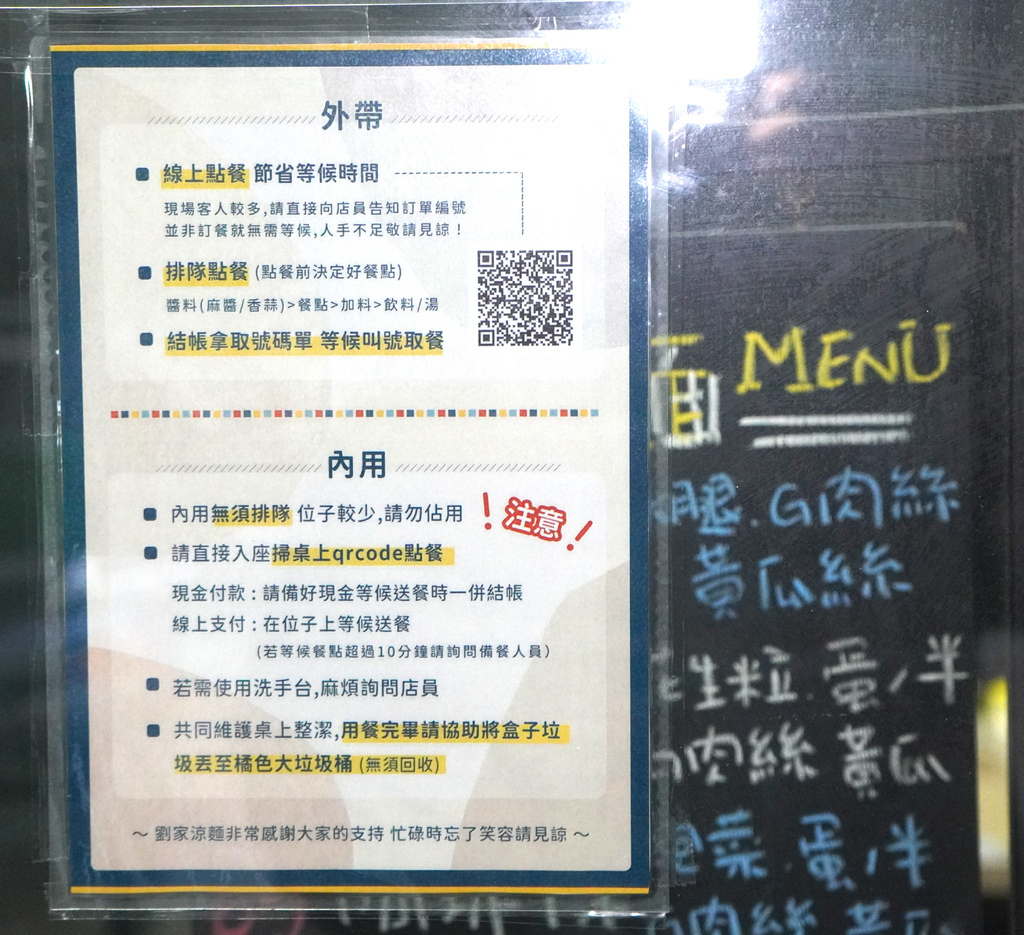 外帶
線上點餐 節省等候時間
現場客人較多,請直接向店員告知訂單編號
並非訂餐就無需等候,人手不足敬請見諒！
排隊點餐 (點餐前決定好餐點)
醬料(麻醬/香蒜)>餐點>加料>飲料/湯
結帳拿取號碼單 等候叫號取餐
內用
內用無須排隊 位子較少,請勿佔用
！注意！
請直接入座掃桌上qrcode點餐
現金付款：請備好現金等候送餐時一併結帳
線上支付：在位子上等候送餐
(若等候餐點超過10分鐘請詢問備餐人員)
若需使用洗手台,麻煩詢問店員
共同維護桌上整潔,用餐完畢請協助將盒子垃
圾丟至橘色大垃圾桶 (無須回收)
～ 劉家涼麵非常感謝大家的支持 忙碌時忘了笑容請見諒 ～
面 MENU
腿.G肉絲
黃瓜絲
生粒.蛋/半
肉絲 黃瓜
菜.蛋/半
肉絲 黃瓜